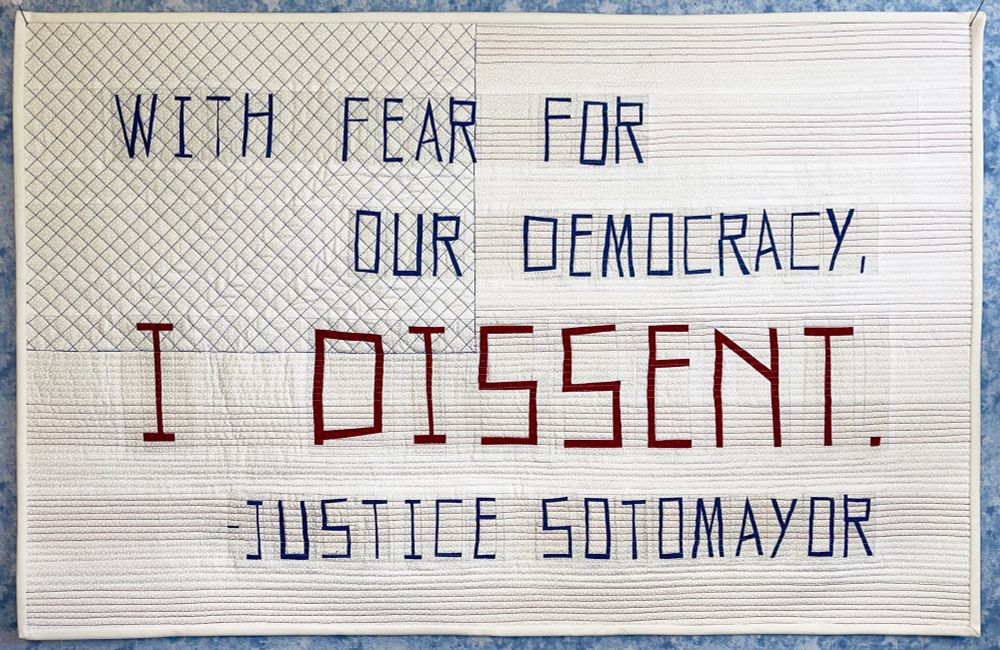 WITH FEAR FOR
OUR DEMOCRACY,
I DISSENT.
-JUSTICE SOTOMAYOR